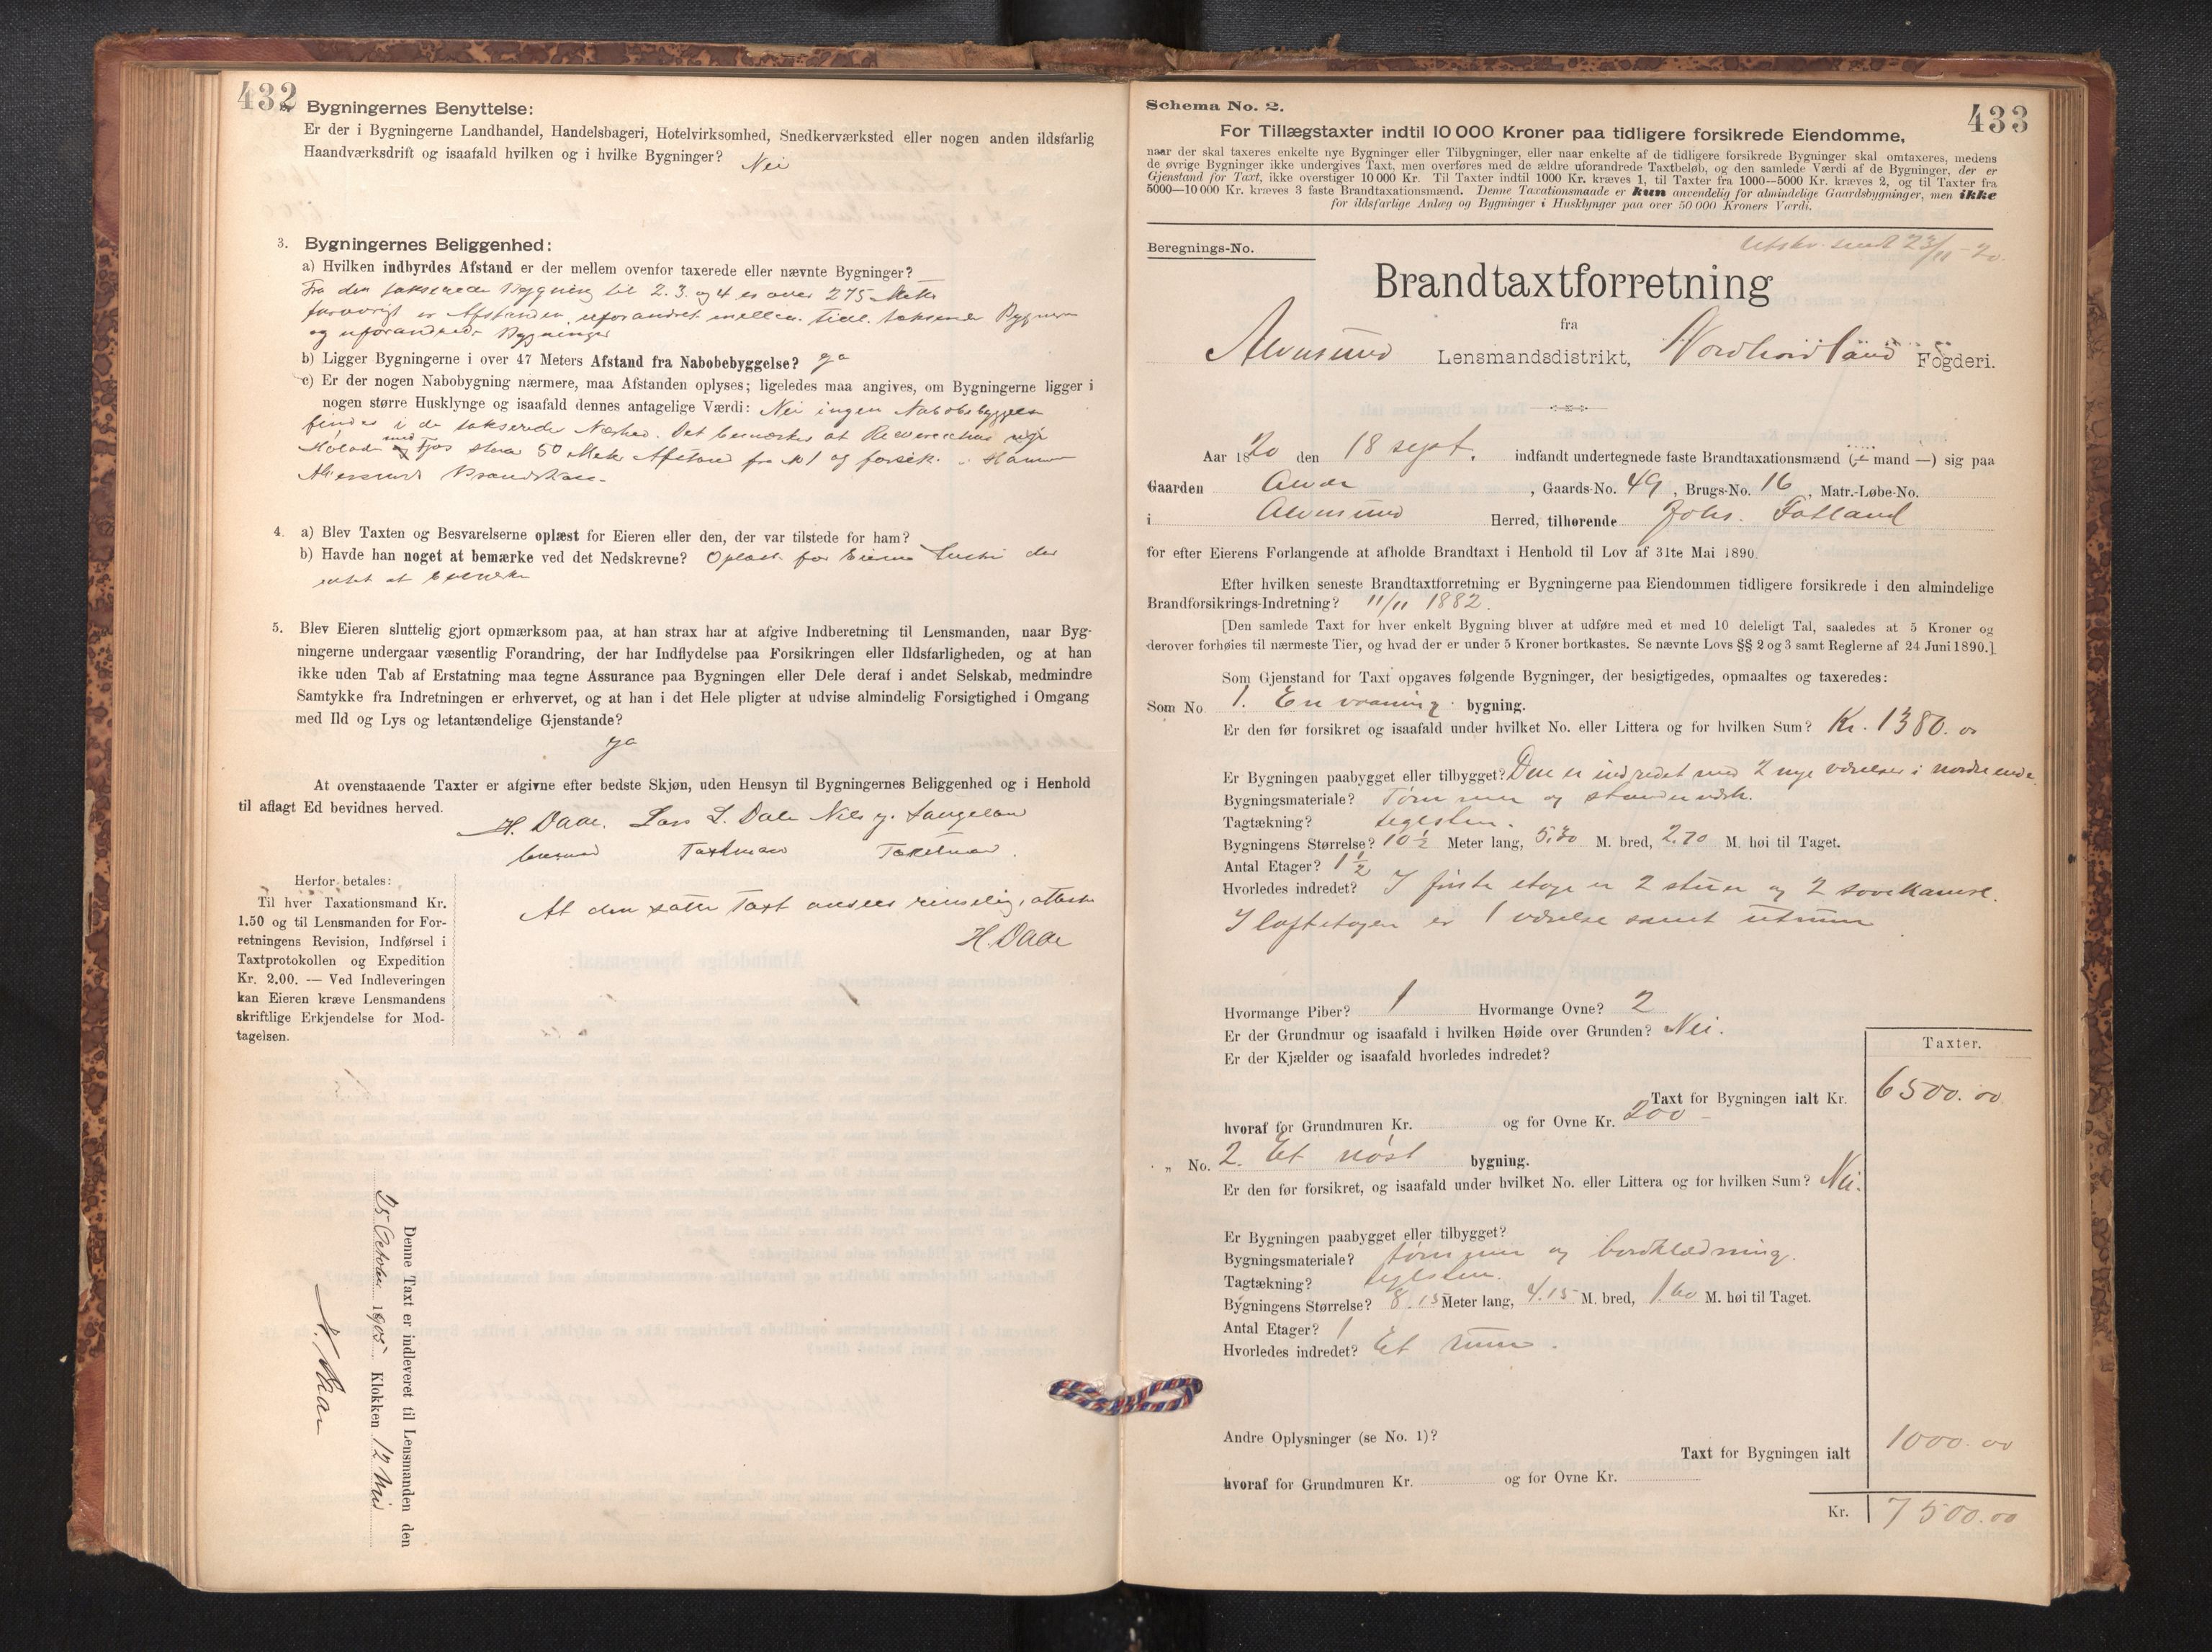 432
Bygningernes Benyttelse:
Er der i Bygningerne Landhandel, Handelsbageri, Hotelvirksomhed, Snedkerværksted eller nogen anden ildsfarlig
Haandværksdrift og isaafald hvilken og i hvilke Bygninger? Nei
3. Bygningernes Beliggenhed:
a) Hvilken indbyrdes Afstand er der mellem ovenfor taxerede eller nævnte Bygninger?
Fra den takserede Bygning til 2. 3. og 4 er over 275 Meter
forøvrigt er Afstanden uforandret mellem tidl. takserede Bygninger
og uforandrede Bygninger
b) Ligger Bygningerne i over 47 Meters Afstand fra Nabobebyggelse? ja
c) Er der nogen Nabobygning nærmere, maa Afstanden oplyses; ligeledes maa angives, om Bygningerne ligger i
nogen større Husklynge og isaafald dennes antagelige Værdi: Nei ingen Nabobebyggelse
findes i de takserede Nærhed. Det bemærkes at
med Fjøs 50 Afstand fra No 1 og
4. a) Blev Taxten og Besvarelserne oplæst for Eieren eller den, der var tilstede for ham?
b) Havde han noget at bemærke ved det Nedskrevne? Oplæst for Eierens Hustru der
intet at bemærke
5. Blev Eieren sluttelig gjort opmærksom paa, at han strax har at afgive Indberetning til Lensmanden, naar Byg-
ningerne undergaar væsentlig Forandring, der har Indflydelse paa Forsikringen eller Ildsfarligheden, og at han
ikke uden Tab af Erstatning maa tegne Assurance paa Bygningen eller Dele deraf i andet Selskab, medmindre
Samtykke fra Indretningen er erhvervet, og at han i det Hele pligter at udvise almindelig Forsigtighed i Omgang
med Ild og Lys og letantændelige Gjenstande?
ja
At ovenstaaende Taxter er afgivne efter bedste Skjøn, uden Hensyn til Bygningernes Beliggenhed og i Henhold
til aflagt Ed bevidnes herved.
H. Daae. Lars L. Dale Nils J.
Lensmand Taxtmand Taxtmand.
Herfor betales:
Til hver Taxationsmand Kr.
1.50 og til Lensmanden for For-
retningens Revision, Indførsel i
Taxtprotokollen og Expedition
Kr. 2.00. — Ved Indleveringen
kan Eieren kræve Lensmandens
skriftlige Erkjendelse for Mod-
tagelsen.
At den satte Taxt ansees rimelig, attesteres
H. Daae
Denne Taxt er indleveret til Lensmanden den
25 October 1905 Klokken 12 Mid
433
Schema No. 2.
For Tillægstaxter indtil 10 000 Kroner paa tidligere forsikrede Eiendomme,
naar der skal taxeres enkelte nye Bygninger eller Tilbygninger, eller naar enkelte af de tidligere forsikrede Bygninger skal omtaxeres, medens
de øvrige Bygninger ikke undergives Taxt, men overføres med de ældre uforandrede Taxtbeløb, og den samlede Værdi af de Bygninger, der er
Gjenstand for Taxt, ikke overstiger 10 000 Kr. Til Taxter indtil 1000 Kr. kræves 1, til Taxter fra 1000—5000 Kr. kræves 2, og til Taxter fra
5000—10 000 Kr. kræves 3 faste Brandtaxationsmænd. Denne Taxationsmaade er kun anvendelig for almindelige Gaardsbygninger, men ikke
for ildsfarlige Anlæg og Bygninger i Husklynger paa over 50 000 Kroners Værdi.
Beregnings-No.
Utskr. sendt 23/11-20.
Brandtaxtforretning
fra
Alversund Lensmandsdistrikt, Nordhordland Fogderi.
Aar 1820 den 18 sept. indfandt undertegnede faste Brandtaxationsmænd (— mand —) sig paa
Gaarden Alver, Gaards-No. 49, Brugs-No. 16, Matr.-Løbe-No.
i Alversund Herred, tilhørende Johs. Fotland
for efter Eierens Forlangende at afholde Brandtaxt i Henhold til Lov af 31te Mai 1890.
Efter hvilken seneste Brandtaxtforretning er Bygningerne paa Eiendommen tidligere forsikrede i den almindelige
Brandforsikrings-Indretning? 11/11 1882.
[Den samlede Taxt for hver enkelt Bygning bliver at udføre med et med 10 deleligt Tal, saaledes at 5 Kroner og
derover forhøies til nærmeste Tier, og hvad der er under 5 Kroner bortkastes. Se nævnte Lovs §§ 2 og 3 samt Reglerne af 24 Juni 1890.]
Som Gjenstand for Taxt opgaves følgende Bygninger, der besigtigedes, opmaaltes og taxeredes:
Som No. 1. En vaaning bygning.
Er den før forsikret og isaafald under hvilket No. eller Littera og for hvilken Sum? Kr. 1380.00
Er Bygningen paabygget eller tilbygget? Den er indredet med 2 nye værelser i nordre ende
Bygningsmateriale? Tømmer og standerverk.
Tagtækning? teglsten.
Bygningens Størrelse? 10 ½ Meter lang, 5.30 M. bred, 2.70 M. høi til Taget.
Antal Etager? 1 ½
Hvorledes indredet? I første etage er 2 stuer og 2 sovekamre.
I loftetagen er 1 værelse samt utrum
Hvormange Piber? 1 Hvormange Ovne? 2
Er der Grundmur og isaafald i hvilken Høide over Grunden? Nei.
Er der Kjælder og isaafald hvorledes indredet?
Taxter.
Taxt for Bygningen ialt Kr. 6500.00
hvoraf for Grundmuren Kr. og for Ovne Kr. 200 —
„ No. 2. Et nøst bygning.
Er den før forsikret, og isaafald under hvilket No. eller Littera og for hvilken Sum? Nei.
Er Bygningen paabygget eller tilbygget?
Bygningsmateriale? tømmer og bordklædning.
Tagtækning? teglsten.
Bygningens Størrelse? 8.15 Meter lang, 4.15 M. bred, 1.60 M. høi til Taget.
Antal Etager? 1
Hvorledes indredet? Et rum.
Andre Oplysninger (se No. 1)?
Taxt for Bygningen ialt 1000.00
hvoraf for Grundmuren Kr. og for Ovne Kr.
Kr. 7500.00